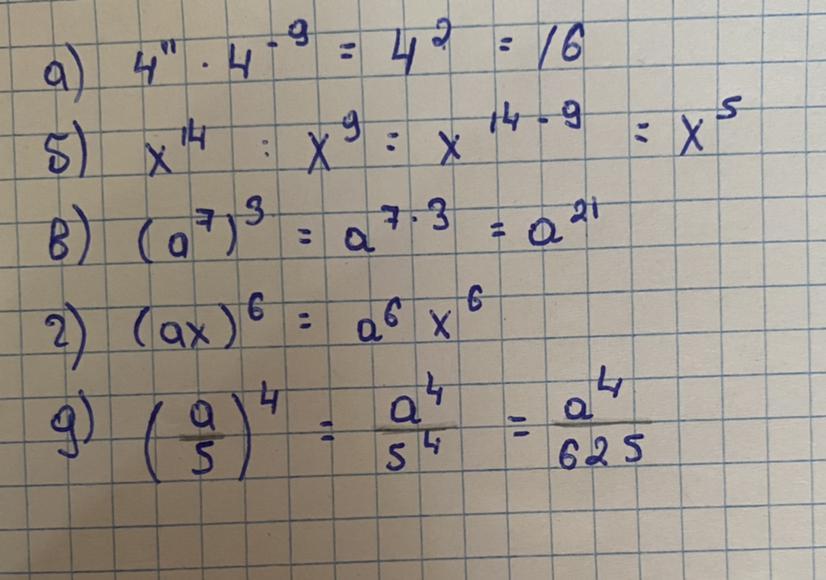 а) 4¹¹ · 4⁻⁹ = 4² = 16
б) x¹⁴ : x⁹ = x¹⁴⁻⁹ = x⁵
в) (a⁷)³ = a⁷·³ = a²¹
г) (ax)⁶ = a⁶ x⁶
д) (a/5)⁴ = a⁴/5⁴ = a⁴/625